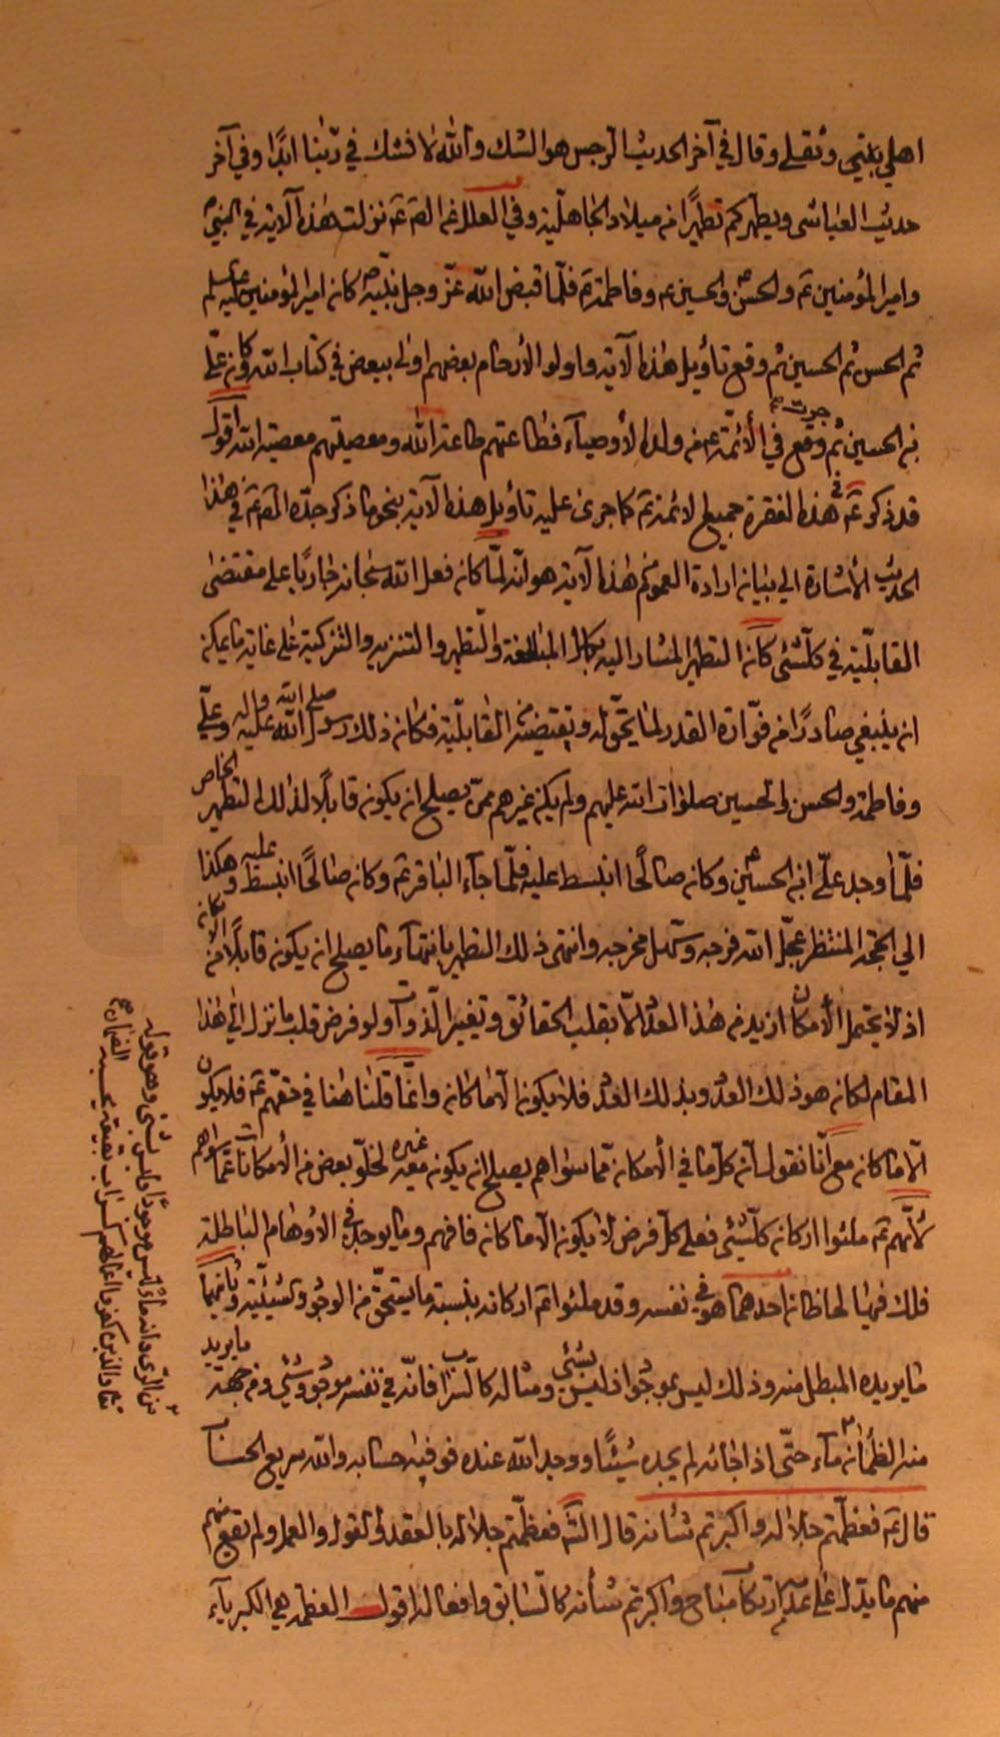 اهلي بيتي وثقلي وقال في آخر الحديث الرجس هو الشك والله لا نشك في ربنا ابدًا وفي آخر
حديث العياشى ويطهركم تطهيرًا من ميلاد الجاهلية وفي العلل عن الص عم نزلت هذه الآية في النبي ص
وامير المؤمنين عم والحسن والحسين عم وفاطمة عم فلمّا قبض الله عزّ وجل نبيّه ص كان امير المؤمنين عليه السلم
ثم الحسن ثم الحسين ثم وقع تأويل هذه الآية واولو الأرحام بعضهم اولى ببعض في كتاب الله وكان علي
بن الحسين ثم وقع جرت في الأئمة عم من ولده الأوصياء فطاعتهم طاعة الله ومعصيتهم معصية الله اقول
قد ذكر عم في هذه الفقرة جميع الائمة عم كما جرى عليه تأويل هذه الآية بنحو ما ذكر جده الص عم في هذا
الحديث الأشارة الى بيان ارادة العموم هذه الآية هو انّه لمّا كان فعل الله سبحانه جاريًا على مقتضى
القابليّة في كلّ شئ كان التطهير المشار اليه بكمال المبالغة والتطهير والتنزيه والتزكية على غاية ما يمكن
ان ينبغي صادرًا من فوّارة القدر لما يحق له وتقتضيه القابليّة فكان ذلك رسول الله صلى الله عليه وآله وعليّ
وفاطمة والحسن والحسين صلوات الله عليهم ولم يكن غيرهم ممّن يصلح ان يكون قابلًا لذلك التطهير الخاص
فلمّا وجد عليّ ابن الحسين وكان صالحًا انبسط عليه فلمّا جاء الباقر عم وكان صالحًا انبسط عليه وهكذا
الى الحجة المنتظر عجّل الله فرجه وسهّل مخرجه وانتهى ذلك التطهير بانتهاء ما يصلح ان يكون قابلًا من الامكان
اذ لا يحتمل الأمكان ازيد من هذا العدد الّا بقلب الحقائق وتغيير الذوات ولو فرض قلب ما نزل الى هذا
المقام لكان هو ذلك العدد وبذلك العدد فلا يكون الّا ما كان وانّما قلنا هنا في حقّهم عم فلا يكون
الّا ما كان مع انّا نقول انّ كلّ ما في الأمكان مما سواهم يصلح ان يكون معه غيره لخلوّ بعض من الأمكانات عمّا سواهم
لأنّهم عم ملئوا اركان كلّ شئ فعلى كلّ فرض لا يكون الّا ما كان فافهم وما يوجد في الاوهام الباطلة
فلك فيها لحاظان احدهما هو في نفسه وقد ملئوا عم اركانه بنسبة ما يستحقّ من الوجود وشيئيّته وثانيهما
ما يريده المبطل منه وذلك ليس بموجود اذ ليس بشئ ومثاله كالسراب فانّه في نفسه موجود وشئ ومن جهة ما يريد
منه الظمآن ماء حتّى اذا جاءه لم يجده شيئًا ووجد الله عنده فوفيه حسابه والله سريع الحساب
قال عم فعظّمتم جلاله واكبرتم شأنه قال الش فعظّمتم جلاله بالعقد والقول والعمل ولم يقع منهم
منهم ما يدّل على عدم ارتكاب مباح واكبرتم شأنه كالسابق وافعاله اقول العظمة هي الكبرياء